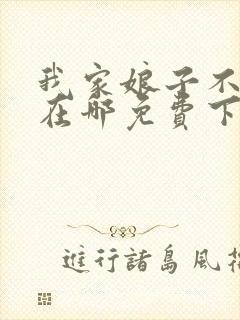 我家娘子不
在哪免費下
進行諸島風